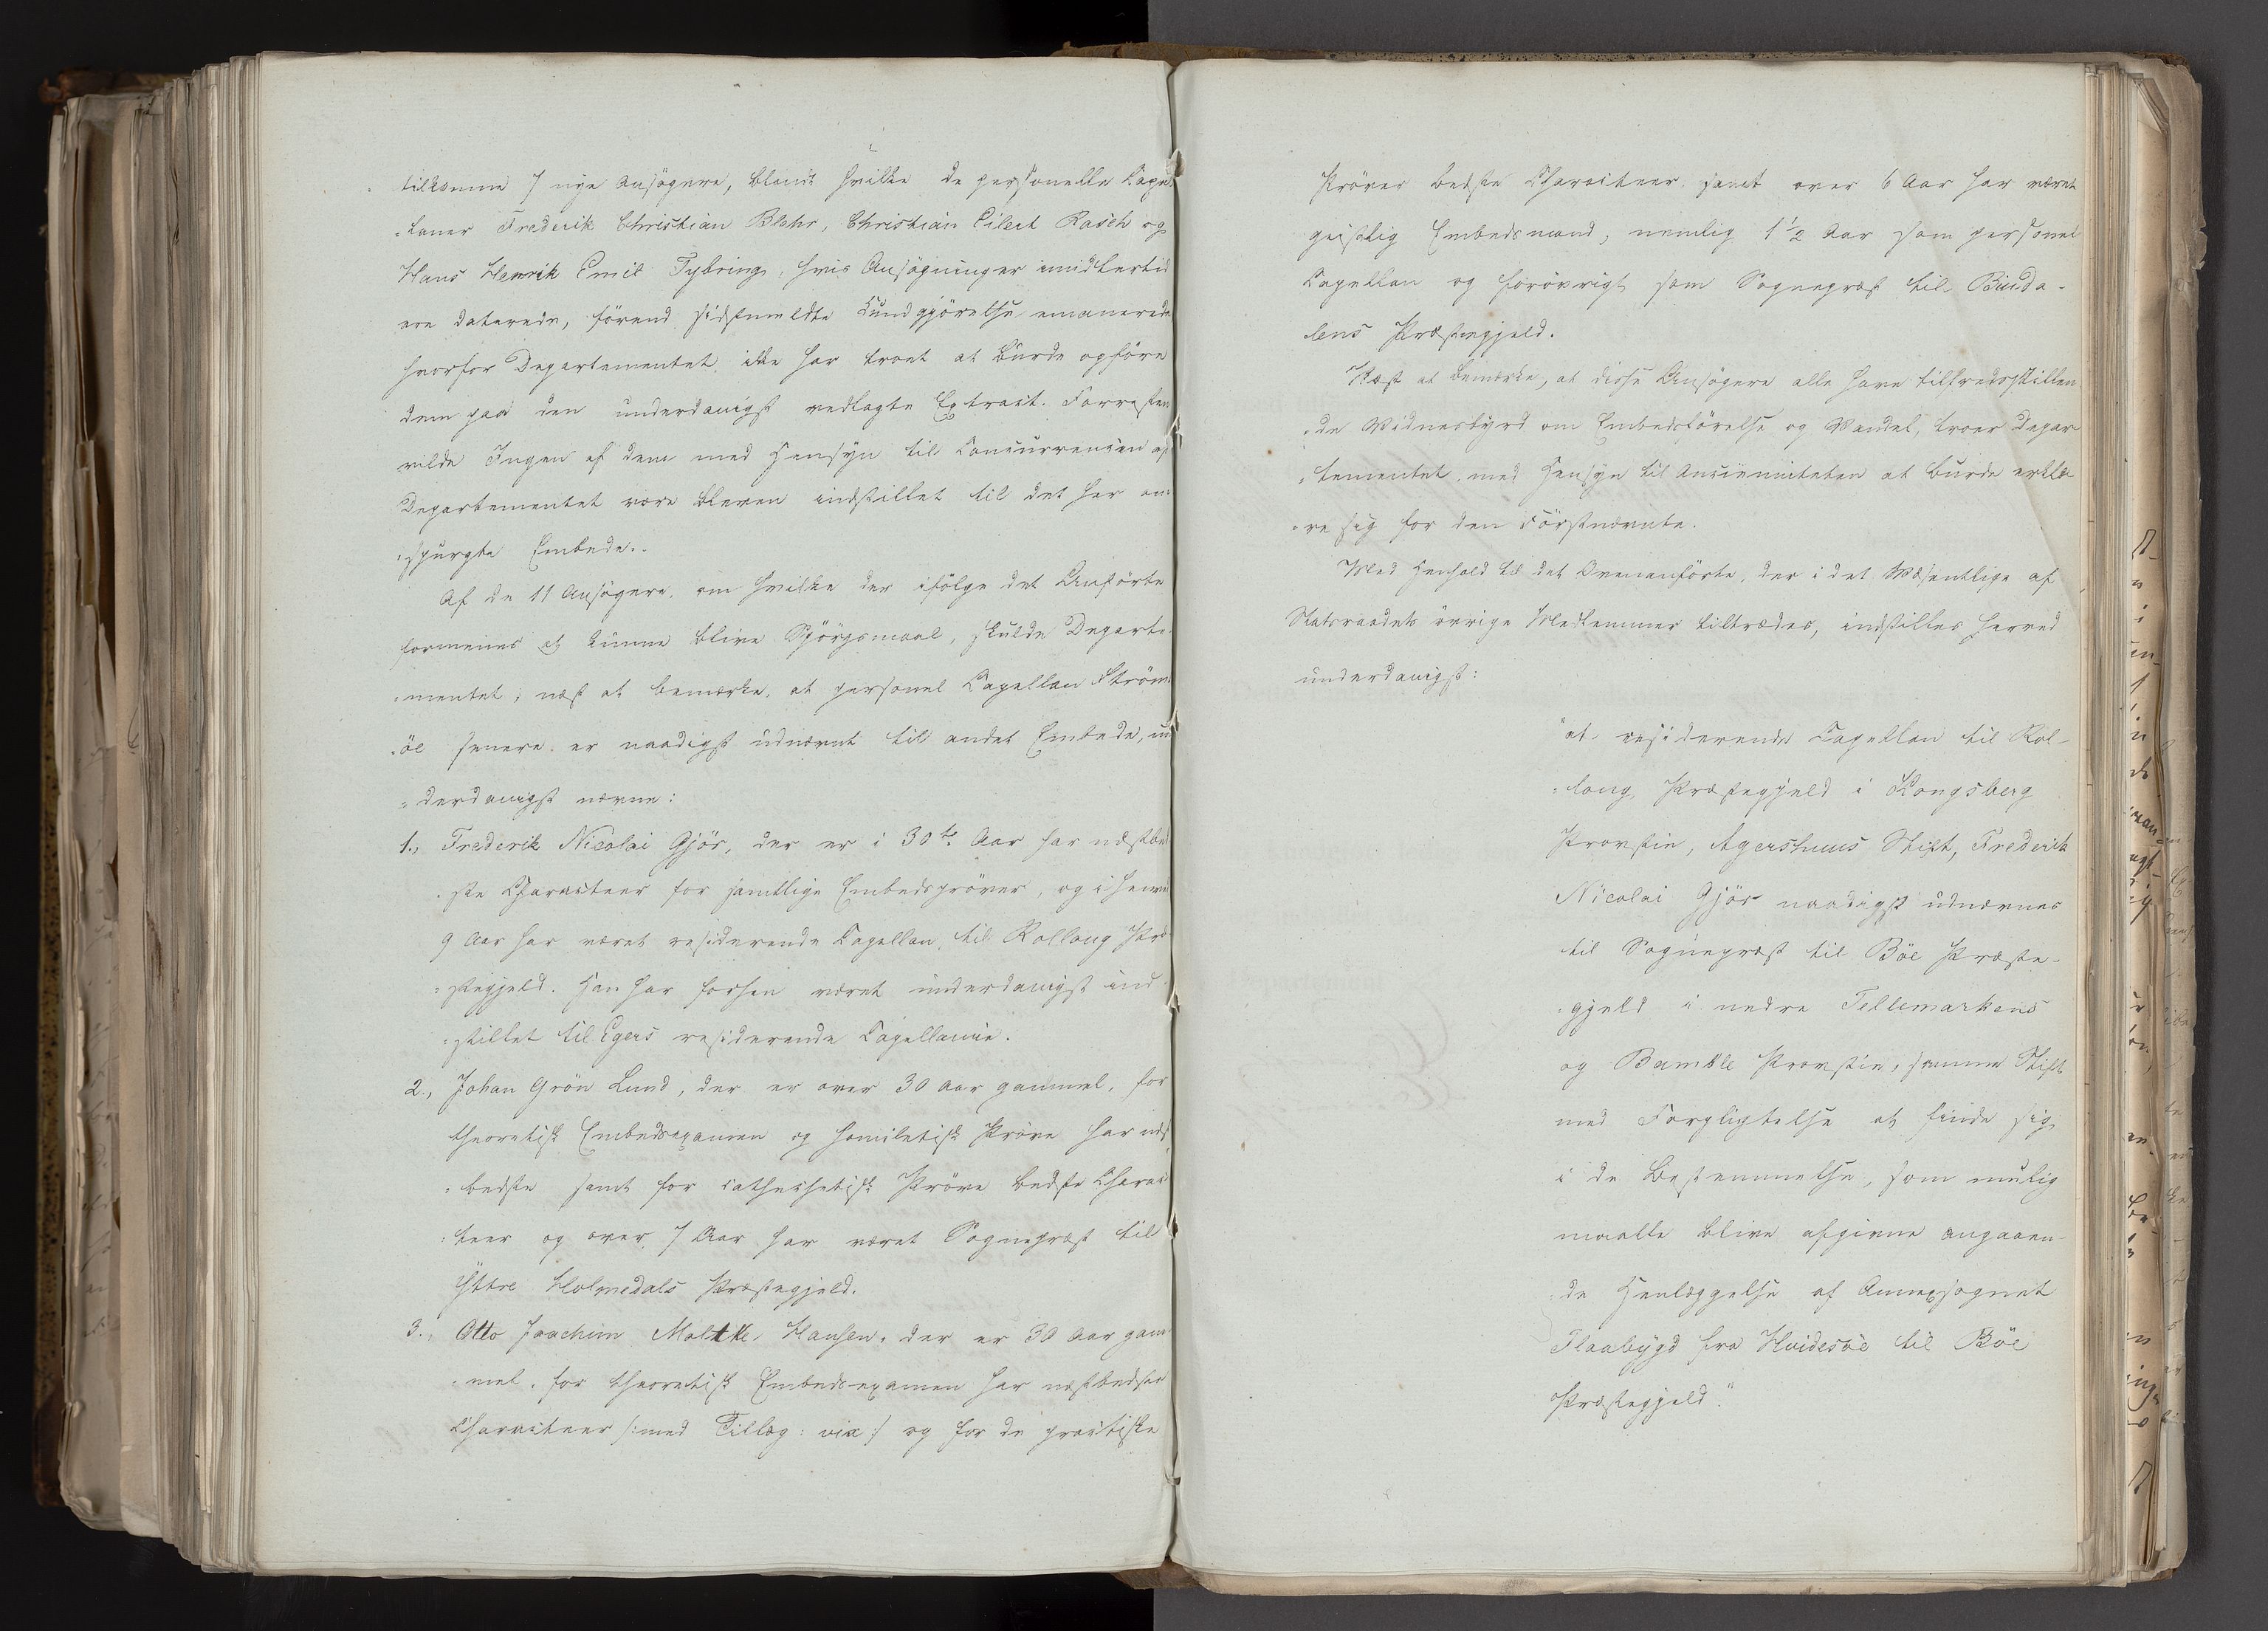 tilkomne 7 nye Ansögere, blandt hvilke de personelle Capel
=laner Frederik Christian Blehr, Christian Eilert Rasch og
Hans Henrik Emil Tybring, hvis Ansögninger imidlertid
ere daterede, förend sidstmeldte Kundgjörelse emanerede
hvorfor Departementet ikke har troet at burde opföre
dem paa den underdanigst vedlagte Extract. Forresten
vilde Ingen af dem med Hensyn til Concurrencen af
Departementet være bleven indstillet til det her om=
=spurgte Embede.
Af de 11 Ansögere, om hvilke der ifölge det Anförte
formenes at kunne blive Spörgsmaal, skulde Departe=
=mentet, næst at bemærke, at personel Capellan Ström=
=öe senere er naadigst udnævnt til andet Embede, un
=derdanigst nævne:
1., Frederik Nicolai Gjör, der er i 30te Aar har næstbed
=ste Characteer for samtlige Embedspröver, og i henved
9 Aar har været residerende Capellan til Rollaug Præ
=stegjeld. Han har forhen været underdanigst ind=
=stillet til Egers residerende Capellanie.
2., Johan Grön Lund, der er over 30 Aar gammel, for
theoretisk Embedsexamen og homiletisk Pröve har næst
=bedste samt for cathechetisk Pröve bedste Charac
=teer og over 7 Aar har været Sognepræst til
Yttre Holmedals Præstegjeld.
3., Otto Joachim Moltke Hansen, der er 30 Aar gam=
=mel, for theoretisk Embedsexamen har næstbedste
Characteer /: med Tillæg: vix :/ og for de practiske
Pröver bedste Characteer, samt over 6 Aar har været
geistlig Embedsmand, nemlig 1 1/2 Aar som personel
Capellan og forövrigt som Sognepræst til Binda-
lens Præstegjeld.
Næst at bemærke, at disse Ansögere alle have tilfredsstillen
=de Vidnesbyrd om Embedsförelse og Vandel, troer Depar
=tementet, med Hensyn til Ancienniteten at burde erklæ
=re sig for den Förstnævnte.
Med Henhold til det Ovenanförte, der i det Væsentlige af
Statsraadets övrige Medlemmer tiltrædes, indstilles herved
underdanigst:
"at residerende Capellan til Rol-
=laug Præstegjeld i Kongsberg
Provstie, Agershuus Stift, Frederik
Nicolai Gjör naadigst udnævnes
til Sognepræst til Böe Præste-
=gjeld i nedre Tellemarkens
og Bamble Provstie, samme Stift
med Forpligtelse at finde sig
i de Bestemmelse, som mulig
maatte blive afgivne angaaen-
de Henlæggelse af Annexsognet
Flaabygd fra Hvidesöe til Böe
Præstegjeld."